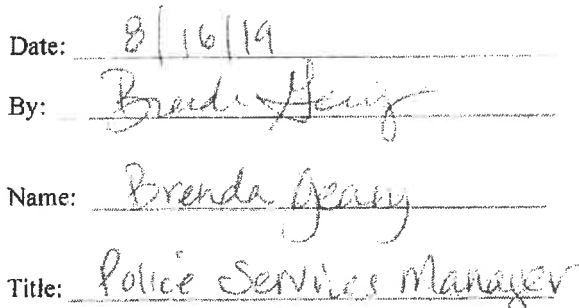 Date: 8/16/19
By: Brenda Geary
Name: Brenda Geary
Title: Police Services Manager